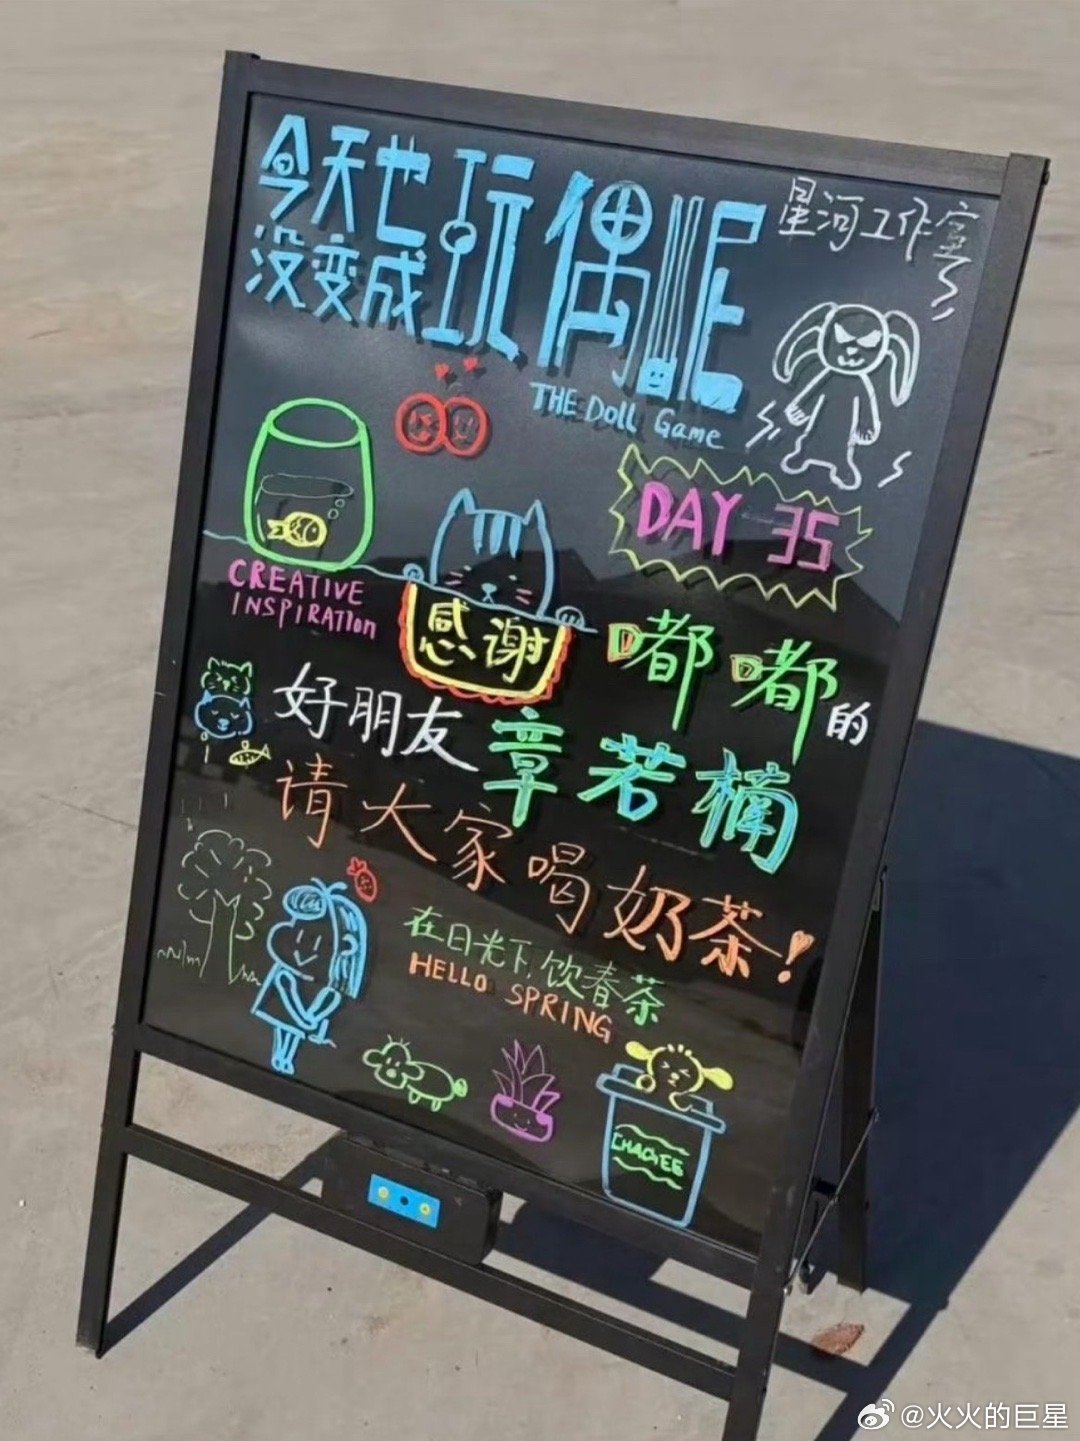 今天也
没变成
玩偶呢
星河工作室
THE Doll Game
DAY 35
CREATIVE
INSPIRATIon
感谢
嘟嘟的
好朋友章若楠
请大家喝奶茶!
在日光下,饮春茶
HELLO SPRING
CHAGEE
@火火的巨星